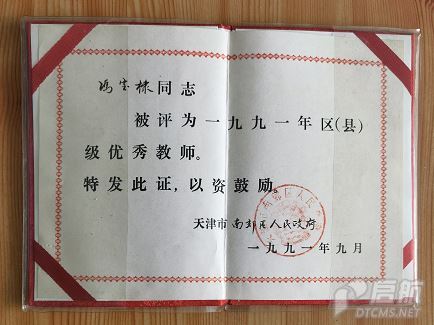 冯宝棣同志
被评为一九九一年区(县)
级优秀教师。
特发此证,以资鼓励
天津市南郊区人民政府
一九九一年九月
启航
DTCMS.NET